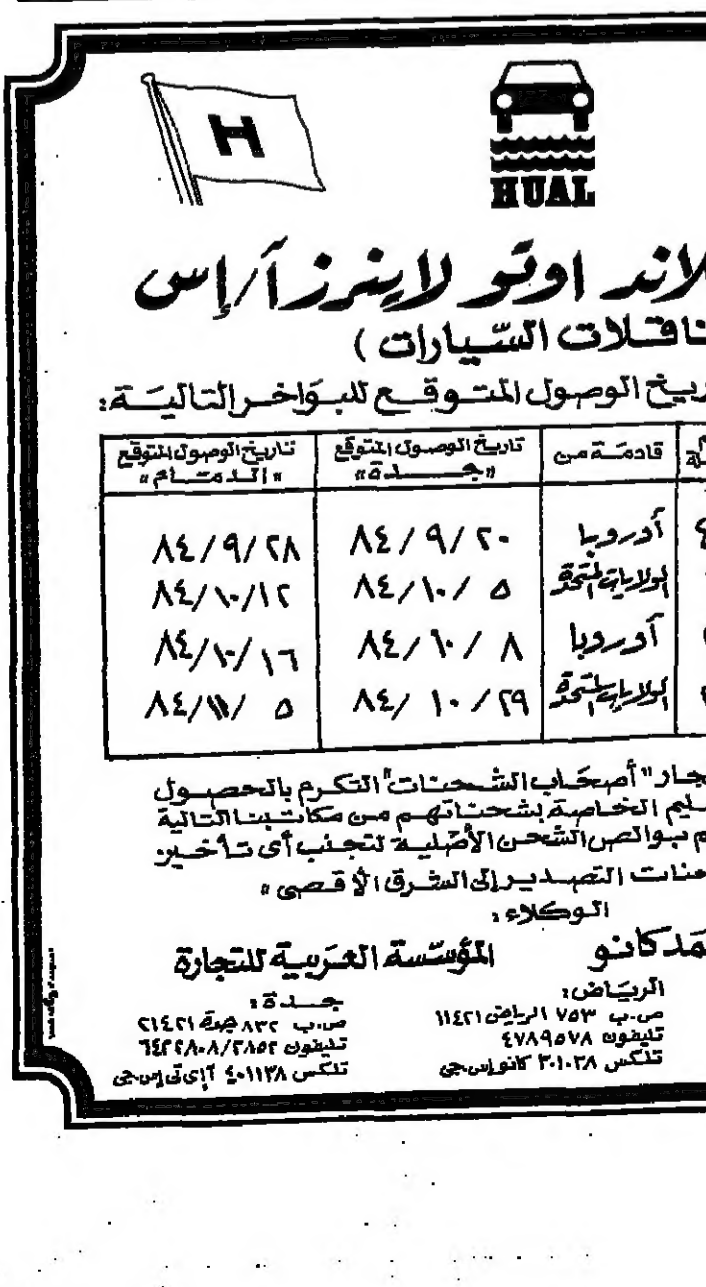 H
HUAL
لاند اوتو لاينرز آ/إس
ناقلات السّيارات )
ريخ الوصول المتوقع للبواخر التالية:
قادمة من
تاريخ الوصول المتوقع
تاريخ الوصول المتوقع
"جدة"
"الدمام"
أوروبا ٨٤/٩/٢٠ ٨٤/٩/٢٨
الولايات المتحدة ٨٤/١٠/٥ ٨٤/١٠/١٢
أوروبا ٨٤/١٠/٨ ٨٤/١٠/١٦
الولايات المتحدة ٨٤/١٠/٢٩ ٨٤/١١/٥
جار "أصحاب الشحنات" التكرم بالحصول
سليم الخاصة بشحناتهم من مكاتبنا التالية
م ببوالص الشحن الأصلية لتجنب أى تأخير
حنات التصدير إلى الشرق الأقصى "
الوكلاء:
مد كانو
المؤسّسة العربية للتجارة
الريّاض:
ص.ب ٧٥٣ الرياض ١١٤٢١
تليفون ٤٧٨٩٥٧٨
تلكس ٣٠١٠٣٨ كانو إس.جى
جدة:
ص.ب ٨٣٢ جدة ٢١٤٢١
تليفون ٦٤٢٢٨٠٨/٢٨٥٢
تلكس ٤٠١١٣٨ آإى تى إس.جى